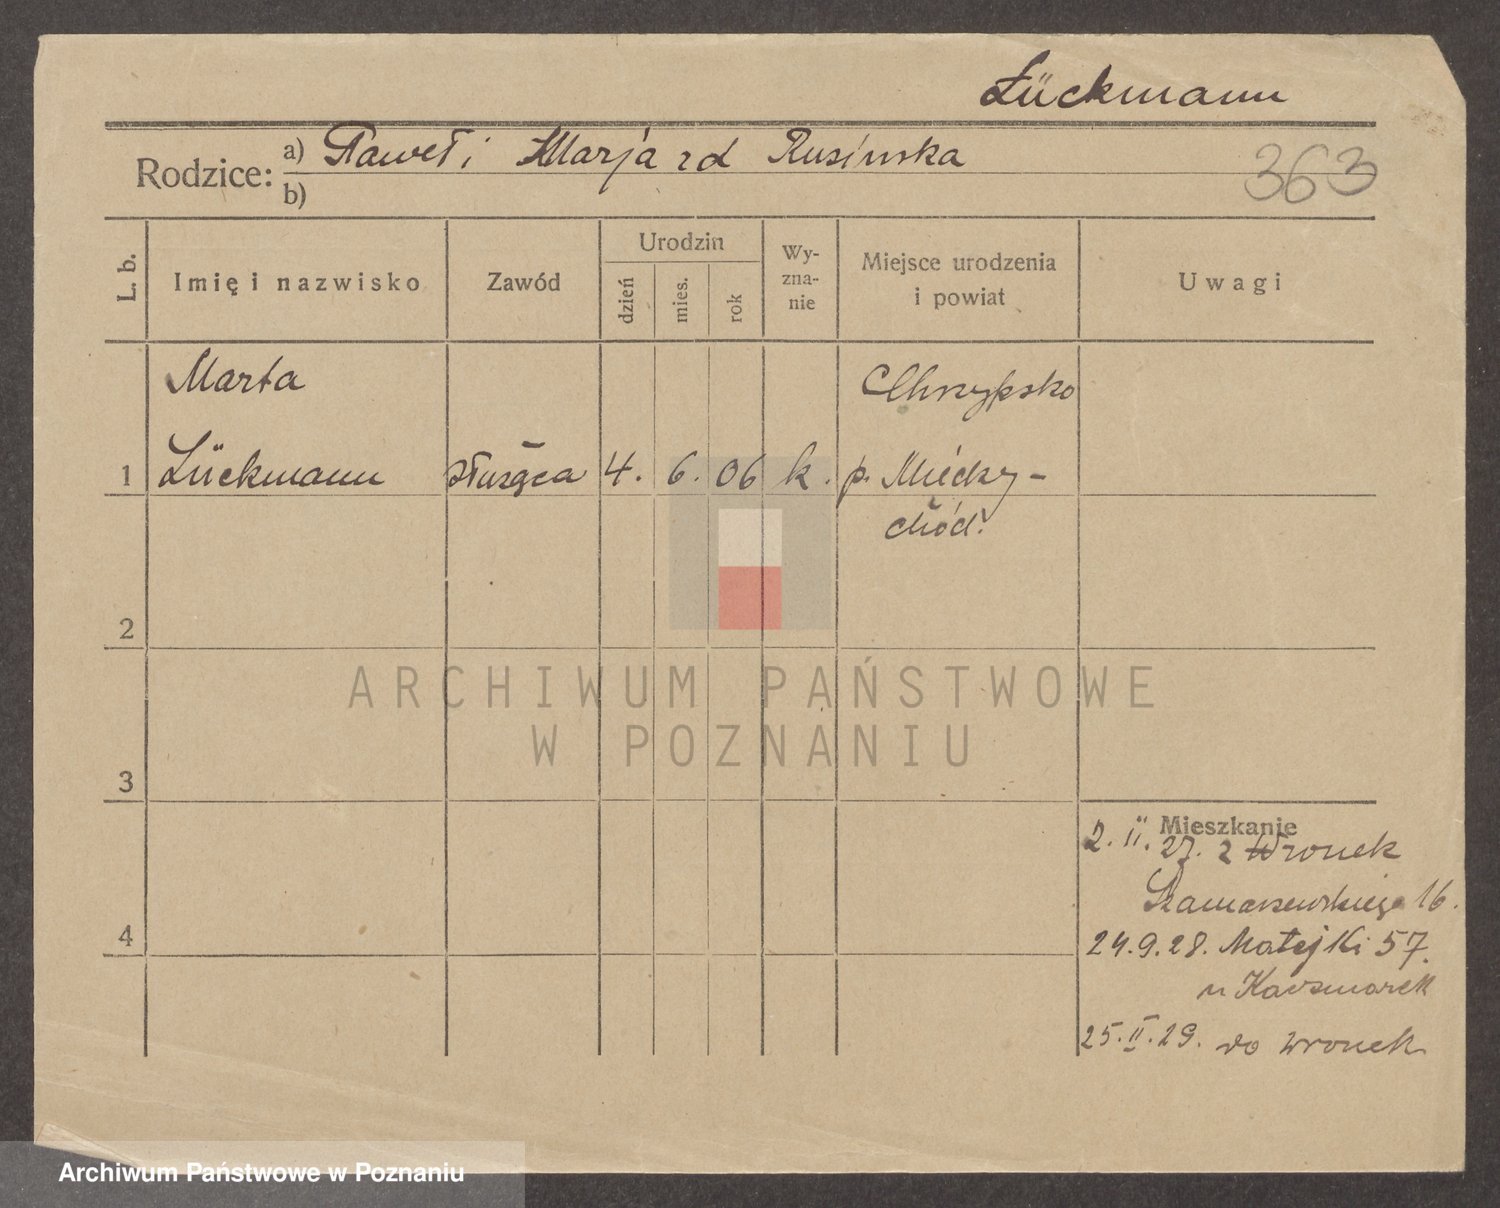 Lückmann
Rodzice: a) Paweł i Marja zd Rusinska
b)
363
L. b.
Imię i nazwisko
Zawód
Urodzin
dzień
mies.
rok
Wy-
zna-
nie
Miejsce urodzenia
i powiat
Uwagi
Marta
Chrzypsko
1 Lückmann służąca 4. 6. 06 k. p. Między-
chód.
2
3
4
Mieszkanie
2. II. 27. z Wronek
Szamarzewskiego 16.
24.9.28. Matejki 57.
u Kaczmarek
25.II.29. do Wronek
ARCHIWUM PAŃSTWOWE
W POZNANIU
Archiwum Państwowe w Poznaniu